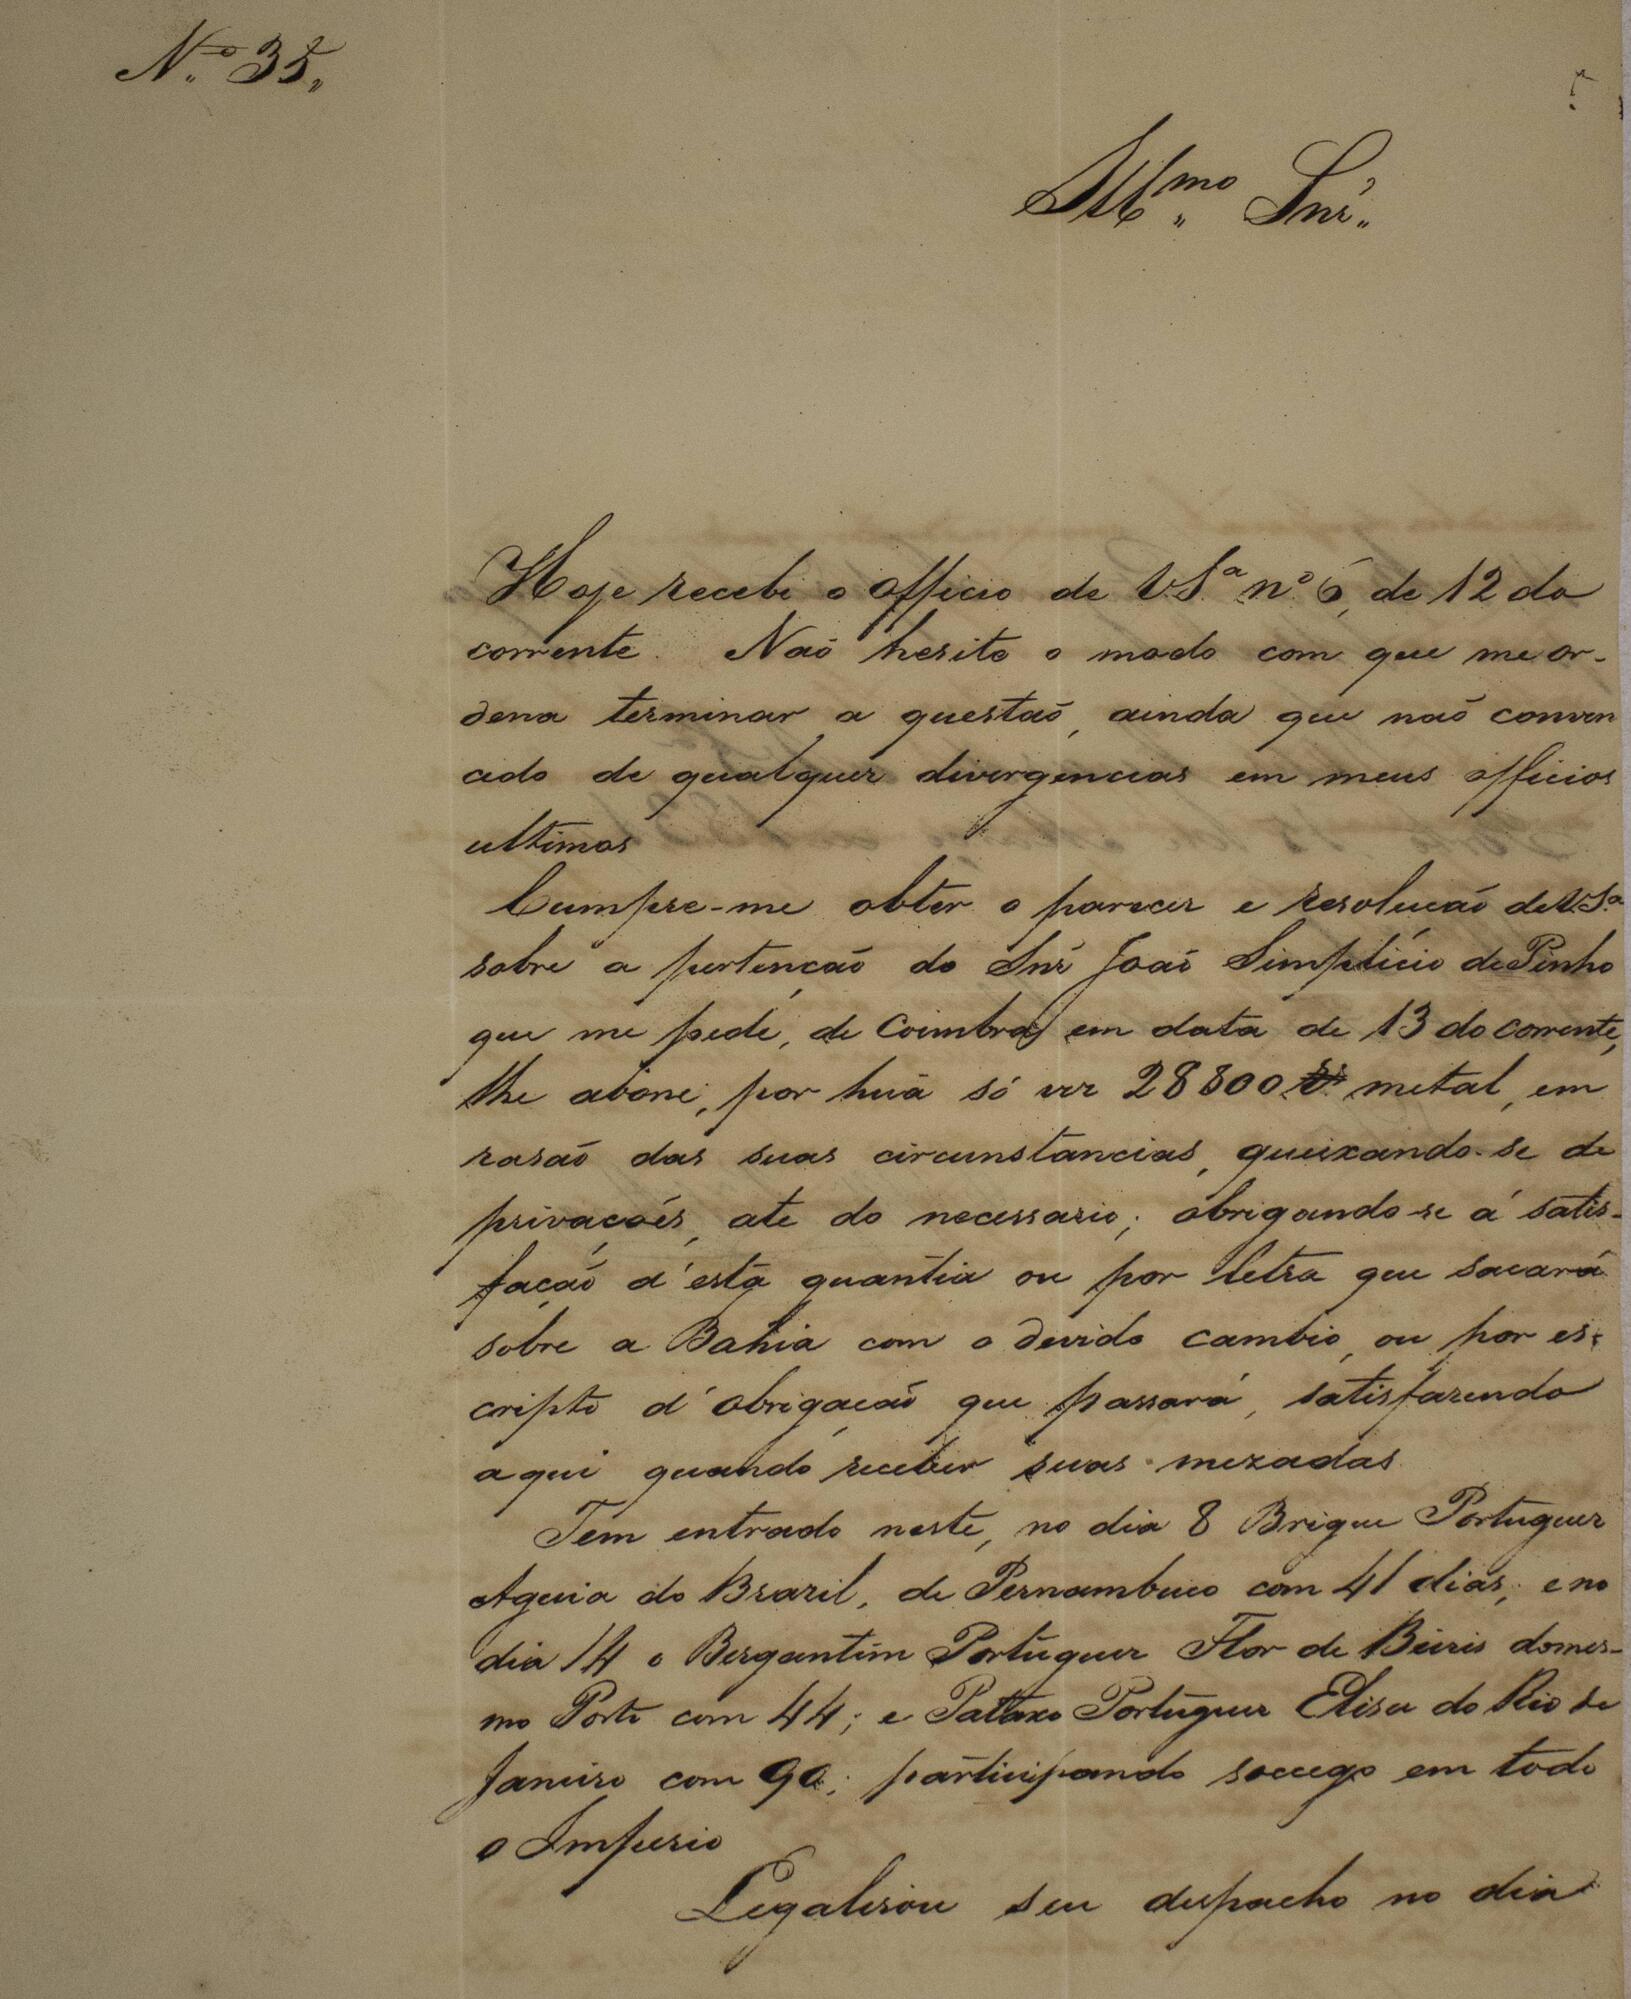 Nº 35,,
Illmo,, Snr.,,
Hoje recebi o officio de V.Sª nº 6, de 12 do
corrente. Naõ hesito o modo com que me or-
dena terminar a questaõ, ainda que naõ conven
cido de qualquer divergencias em meus officios
ultimos
Cumpre-me obter o parecer e resoluçaõ de V.Sª
sobre a pertençaõ do Snr Joaõ Simplicio de Pinho
que me pede, de Coimbra em data de 13 do corrente,
lhe abone, por huã só vez 28800 rs metal, em
rasaõ das suas circunstancias, queixando-se de
privaçoẽs, ate do necessario; obrigando-se á satis-
façaõ d'esta quantia ou por letra que sacará
sobre a Bahia com o devido cambio, ou por es-
cripto d'obrigaçaõ que passará, satisfazendo
aqui quando receber suas mezadas
Tem entrado neste, no dia 8 Brigue Portuguez
Aguia do Brazil, de Pernambuco com 41 dias; e no
dia 14 o Bergantim Portuguez Flor de Beiris do mes-
mo Porto com 44; e Pataxo Portuguez Elisa do Rio de
Janeiro com 90; participando socego em todo
o Imperio
Legalisou seu despacho no dia